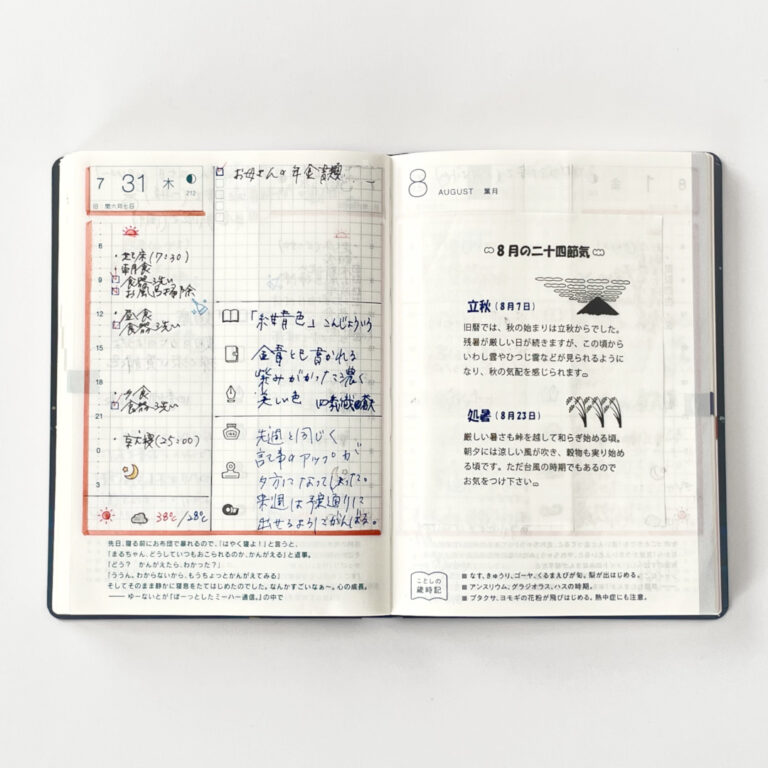 7 31 木
212
旧 閏六月七日
お母さんの年金書類
6
・起床(7:30)
・朝食
9
食器洗い
お風呂掃除
12
・昼食
食器洗い
15
18
・夕食
食器洗い
21
・就寝(25:00)
0
38℃/28℃
「紺青色」こんじょういろ
金青とも書かれる
紫みがかった濃く
美しい色
先週と同じく
記事のアップが
夕方になってしまった。
来週は予定通りに
出せるようにがんばる。
先日、寝る前にお布団で暴れるので、「はやく寝よ!」と言うと、
「まるちゃん、どうしていつもおこられるのか、かんがえる」と返事。
「どう? かんがえたら、わかった?」
「ううん。わからないから、もうちょっとかんがえてみる」
そしてそのまま静かに寝息をたてはじめたのでした。なんかすごいなぁ〜。心の成長。
―― ゆーないとが『ぼーっとしたミーハー通信。』の中で
8 AUGUST 葉月
8月の二十四節気
立秋(8月7日)
旧暦では、秋の始まりは立秋からでした。
残暑が厳しい日が続きますが、この頃から
いわし雲やひつじ雲などが見られるように
なり、秋の気配を感じられます。
処暑(8月23日)
厳しい暑さも峠を越して和らぎ始める頃。
朝夕には涼しい風が吹き、穀物も実り始め
る頃です。ただ台風の時期でもあるので
お気をつけ下さい。
ことしの
歳時記
■ なす、きゅうり、ゴーヤ、くるまえびが旬。梨が出はじめる。
■ アンスリウム、グラジオラス、ハスの時期。
■ ブタクサ、ヨモギの花粉が飛びはじめる。熱中症にも注意。